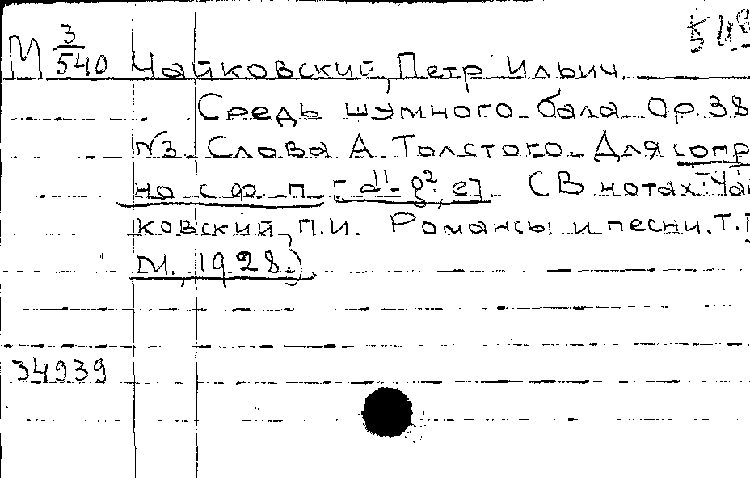 548
М 3/540 Чайковский, Петр Ильич.
Средь шумного бала. Op. 38
№3. Слова А. Толстого. Для сопра
но с ф. п. [d¹-g², e]. (В нотах: Чай
ковский, П.И. Романсы и песни. Т.
М., 1928.)
34939